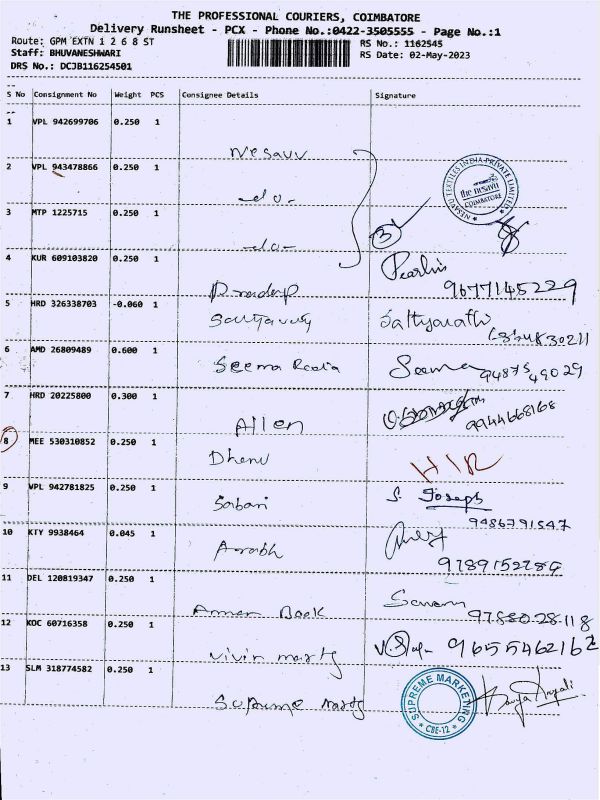 THE PROFESSIONAL COURIERS, COIMBATORE
Delivery Runsheet - PCX - Phone No.:0422-3505555 - Page No.:1
Route: GPM EXTN 1 2 6 8 ST
RS No.: 1162545
Staff: BHUVANESHWARI
RS Date: 02-May-2023
DRS No.: DCJB116254501
S No Consignment No Weight PCS Consignee Details Signature
1 VPL 942699706 0.250 1 Nesavu
2 VPL 943478866 0.250 1 -do-
NESAVU TEXTILES INDIA PRIVATE LIMITED
the nesavu
COIMBATORE
3 MTP 1225715 0.250 1 -do- 3
4 KUR 609103820 0.250 1 Pradeep 9677145229
5 HRD 326338703 -0.060 1
6 AMD 26809489 0.600 1 Seema Seema 94875 49029
7 HRD 20225800 0.300 1 Allen 9944668168
8 MEE 530310852 0.250 1 Dhenu
9 VPL 942781825 0.250 1 Sabari S. Joseph
9486791547
10 KTY 9938464 0.045 1
11 DEL 120819347 0.250 1 Book 97880 28118
12 KOC 60716358 0.250 1 Vivin 9655462162
13 SLM 318774582 0.250 1 Supreme
SUPREME MARKETING
CBE-12